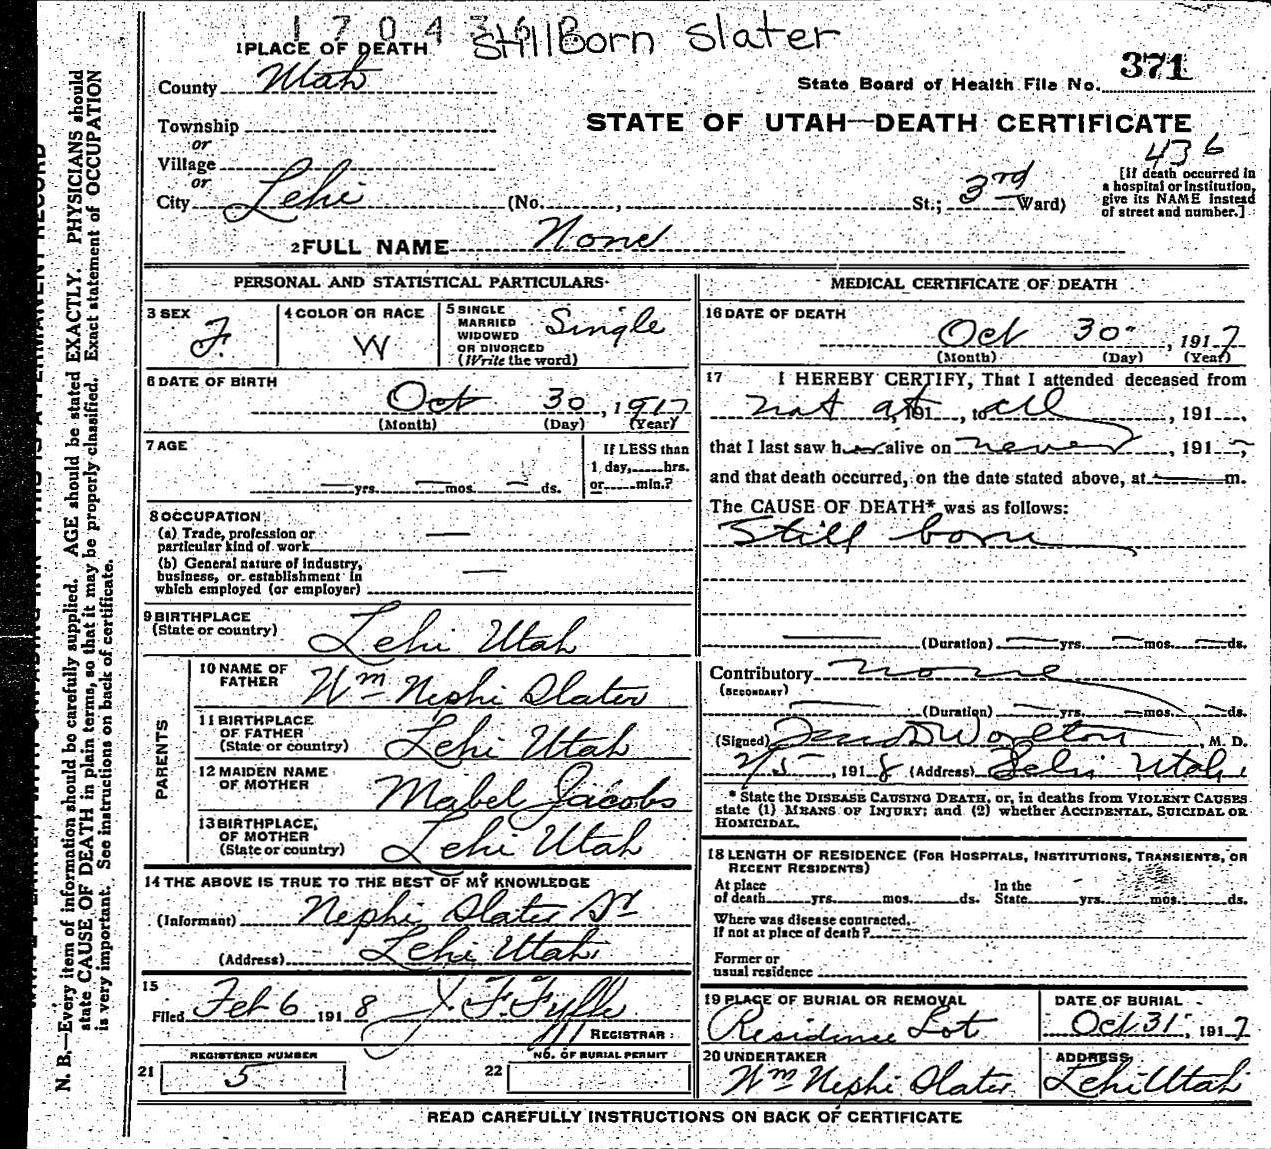 1 7 0 4 3
StillBorn Slater
1 PLACE OF DEATH
County Utah
State Board of Health File No. 371
STATE OF UTAH—DEATH CERTIFICATE
436
Township
or
Village
or
City Lehi (No. , St.; 3rd Ward)
[If death occurred in
a hospital or institution,
give its NAME instead
of street and number.]
2 FULL NAME None
PERSONAL AND STATISTICAL PARTICULARS
3 SEX F.
4 COLOR OR RACE W
5 SINGLE
MARRIED
WIDOWED
OR DIVORCED
(Write the word)
Single
6 DATE OF BIRTH
Oct 30, 1917
(Month) (Day) (Year)
7 AGE
— yrs. — mos. — ds.
If LESS than
1 day, hrs.
or min.?
8 OCCUPATION
(a) Trade, profession or
particular kind of work —
(b) General nature of industry,
business, or establishment in
which employed (or employer) —
9 BIRTHPLACE
(State or country) Lehi Utah
PARENTS
10 NAME OF
FATHER Wm Nephi Slater
11 BIRTHPLACE
OF FATHER
(State or country) Lehi Utah
12 MAIDEN NAME
OF MOTHER Mabel Jacobs
13 BIRTHPLACE
OF MOTHER
(State or country) Lehi Utah
14 THE ABOVE IS TRUE TO THE BEST OF MY KNOWLEDGE
(Informant) Nephi Slater Sr
(Address) Lehi Utah
15
Filed Feb 6 1918 J. F. Fyffe
REGISTRAR
REGISTERED NUMBER
21 5
NO. OF BURIAL PERMIT
22
MEDICAL CERTIFICATE OF DEATH
16 DATE OF DEATH
Oct 30, 1917
(Month) (Day) (Year)
17 I HEREBY CERTIFY, That I attended deceased from
not at, 191 , to all , 191 ,
that I last saw her alive on never , 191 ,
and that death occurred, on the date stated above, at m.
The CAUSE OF DEATH* was as follows:
Still born
(Duration) — yrs. — mos. — ds.
Contributory none
(SECONDARY)
(Duration) — yrs. — mos. — ds.
(Signed) , M. D.
2/5, 1918 (Address) Lehi Utah
* State the DISEASE CAUSING DEATH, or, in deaths from VIOLENT CAUSES
state (1) MEANS OF INJURY; and (2) whether ACCIDENTAL, SUICIDAL OR
HOMICIDAL.
18 LENGTH OF RESIDENCE (FOR HOSPITALS, INSTITUTIONS, TRANSIENTS, OR
RECENT RESIDENTS)
At place
of death yrs. mos. ds.
In the
State yrs. mos. ds.
Where was disease contracted,
If not at place of death?
Former or
usual residence
19 PLACE OF BURIAL OR REMOVAL
Residence Lot
DATE OF BURIAL
Oct 31, 1917
20 UNDERTAKER
Wm Nephi Slater
ADDRESS
Lehi Utah
READ CAREFULLY INSTRUCTIONS ON BACK OF CERTIFICATE
N. B.—Every item of information should be carefully supplied. AGE should be stated EXACTLY. PHYSICIANS should
state CAUSE OF DEATH in plain terms, so that it may be properly classified. Exact statement of OCCUPATION
is very important. See instructions on back of certificate.